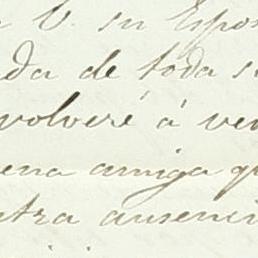 V. su Espos
da de toda s
volveré á ve
ena amiga q
tra ausenci